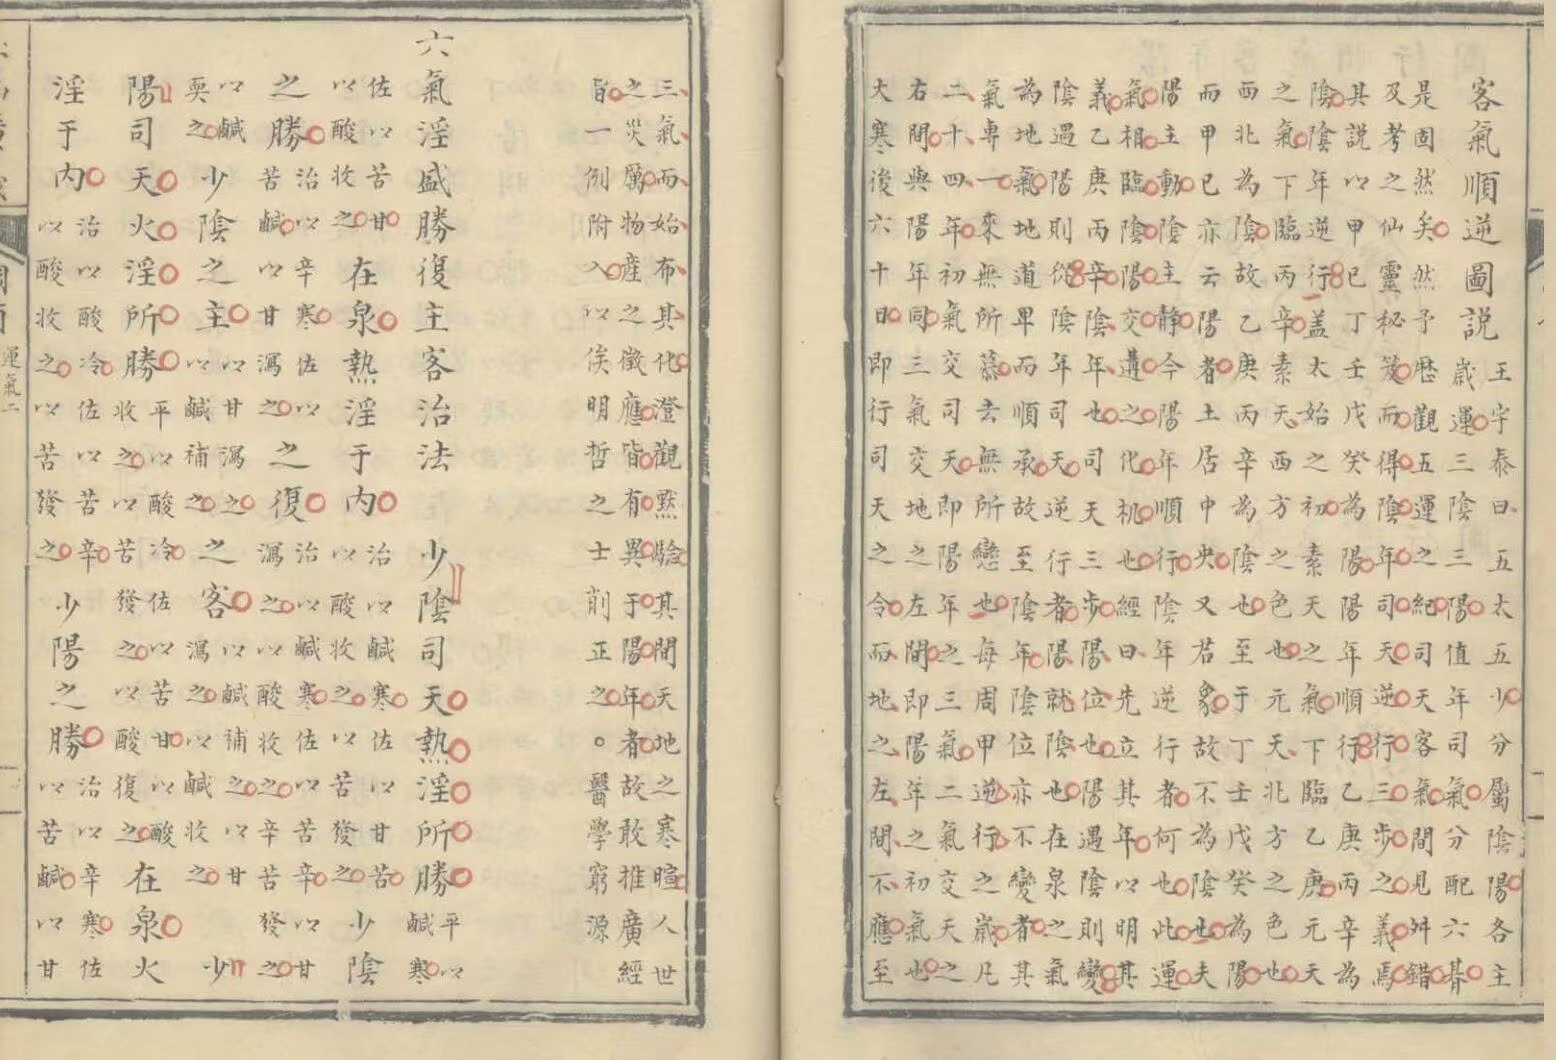 客氣順逆圖說
王字泰曰五太五少分屬陰陽各主
歲運三陰三陽值年司氣分配六朞
是固然矣然予歷觀五運之紀司天客氣間見舛錯
及考之仙靈秘笈而得陰年司天逆行三步之義焉
其說以甲巳丁壬戊癸為陽陽年順行乙庚丙辛為
陰陰年逆行盖太始之初素天之氣下臨乙庚元天
之氣下臨丙辛素天西方之色也元天北方之色也
西北為陰故乙庚丙辛為陰也至于丁壬戊癸為陽
而甲巳亦云陽者土居中央又君象故不為陰也夫
陽主動陰主静今陽年順行陰年逆行者何也此運
氣相臨陰陽交遘之化机也經曰先立其年以明其
義乙庚丙辛陰年也司天三步陽位也陽遇陰則變
陰遇陽則從陰年司天逆行者陽就陰也在泉之氣
為地氣地道卑而順承故至陰年陰位亦不變者其
氣專一來無所慕去無所戀也每周甲逆行之歲凡
二十四年初氣交司天即陽年之三氣二氣交天之
右間與陽年同三氣交地之左間即陽年之初氣也
大寒後六十日即行司天之令而地之左間不應至
三氣而始布其化澄觀默驗其間天地之寒暄人世
之災厲物產之徵應皆有異于陽年者故敢推廣經
旨一例附入以俟明哲之士削正之。醫學窮源
六氣淫盛勝復主客治法 少陰司天熱淫所勝平以鹹寒
佐以苦甘以酸收之在泉熱淫于内治以鹹寒佐以甘苦以酸收之以苦發之少陰
之勝治以辛寒佐以苦鹹以甘瀉之之復治以鹹寒佐以苦辛以甘瀉之以酸收之辛苦發之
以鹹耎之少陰之主以甘瀉之以鹹補之之客以鹹補之以甘瀉之以鹹收之少
陽司天火淫所勝平以酸冷佐以苦甘以酸收之以苦發之以酸復之在泉火
淫于内治以酸冷佐以苦辛以酸收之以苦發之少陽之勝治以辛寒佐以苦鹹以甘
運氣二